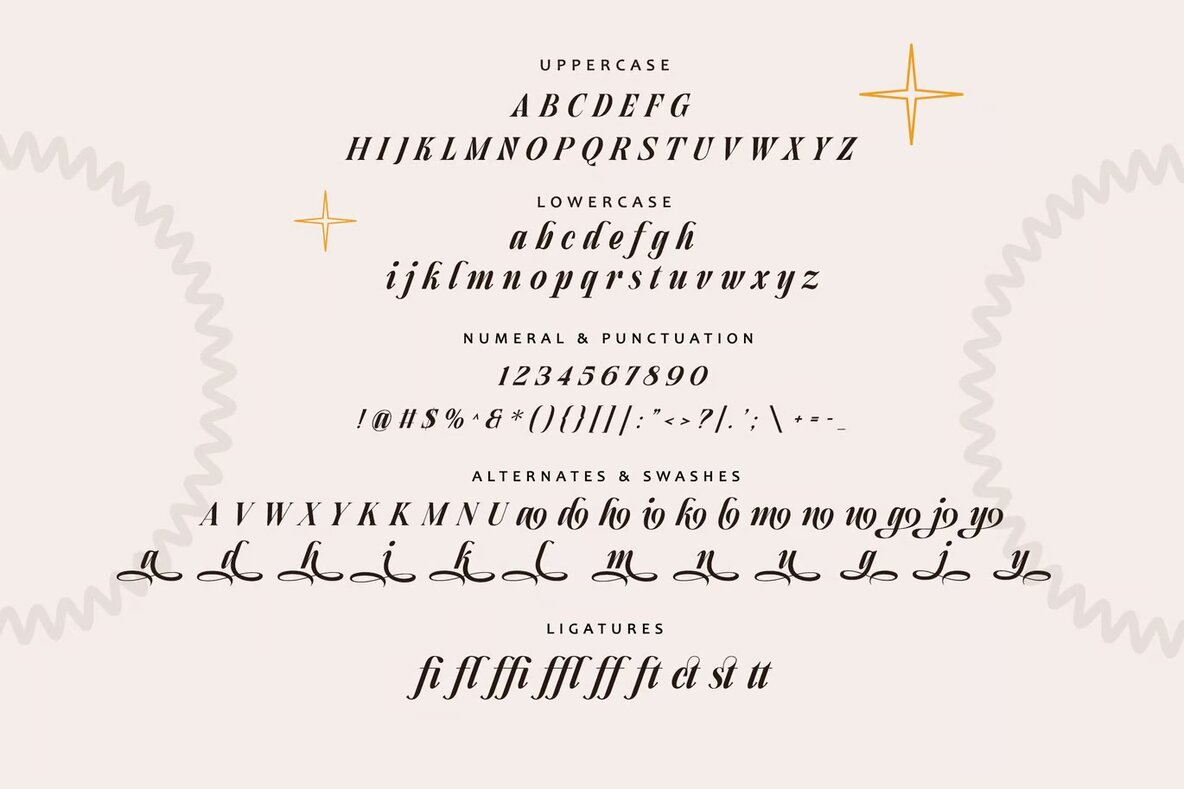 UPPERCASE
A B C D E F G
H I J K L M N O P Q R S T U V W X Y Z
LOWERCASE
a b c d e f g h
i j k l m n o p q r s t u v w x y z
NUMERAL & PUNCTUATION
1 2 3 4 5 6 7 8 9 0
! @ # $ % ^ & * ( ) { } [ ] | : " < > ? / . ' ; \ + = - _
ALTERNATES & SWASHES
A V W X Y K K M N U ao do ho io ko lo mo no uo go jo yo
a d h i k l m n u g j y
LIGATURES
fi fl ffi ffl ff ft ct st tt